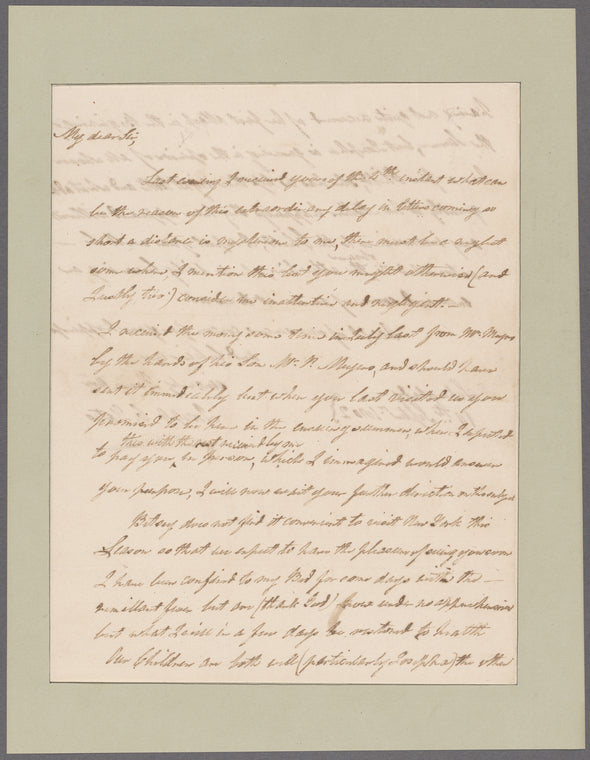 My dear Sir,
Last evening I received yours of the 4th instant what can
be the reason of this extraordinary delay in letters coming so
short a distance is misterious to me, there must be a neglect
some where I mention this lest you might otherwise (and
Justly too) consider me inattentive and negligent.—
I received the money some time in July last from Mr. Meyers
by the hands of his Son Mr. Meyers, and should have
sent it immediately but when you last visited us you
promised to be here in the ensuing summer, when I expected
this with the rest received by me
to pay you in person, which I immagined would answer
your purpose, I will now wait your further direction
Betsey does not find it convenient to visit New York this
Season so that we expect to have the pleasure of seeing you soon
I have been confined to my Bed for some days with the —
remittant fever but am (thank God) now under no apprehension
but what I will in a few days be restored to health
Our Children are both well (particularly Josepha) the other